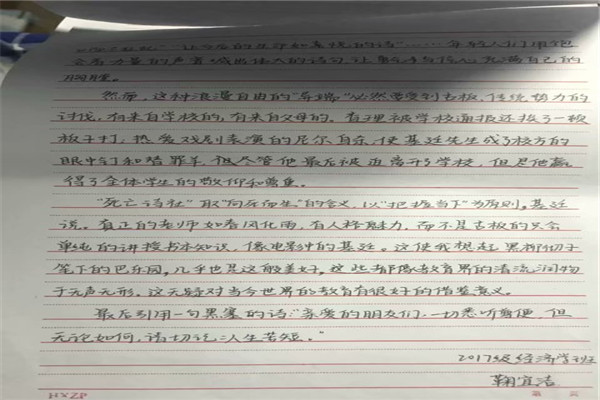 让今后的生命如表现的诗"……年轻人们用饱
含着力量的声音喊出伟人的诗句,让勇气与信心充满自己的
胸膛。
然而,这种浪漫自由的"异端"必然要受到古板、传统势力的
讨伐,有来自学校的,有来自父母的。查理被学校通报还拨了一顿
板子打;热爱戏剧表演的尼尔自杀,使基廷先生成了校方的
眼中钉和替罪羊。但尽管他最后被迫离开了学校,但是他赢
得了全体学生的敬仰和尊重。
"死亡诗社"取"向死而生"的含义,以"把握当下"为原则。基廷
说:真正的老师如春风化雨,有人格魅力,而不是古板的只会
单纯的讲授书本知识,像电影中的基廷。这使我想起黑柳彻子
笔下的巴乐园,几乎也是这般美好。这些都像教育界的清流润物
于无声无形。这无疑对当今世界的教育有很好的借鉴意义。
最后引用一句黑塞的诗:"亲爱的朋友们,一切悉听尊便,但
无论如何,请切记:人生苦短。"
2017级经济学班
鞠宜洁
HXZP
第 页